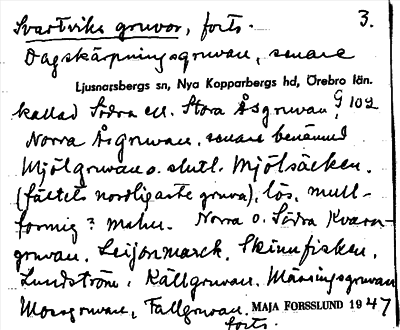 Svartviks gruvor, forts. 3.
Dagskärpningsgruvan, senare
Ljusnarsbergs sn, Nya Kopparbergs hd, Örebro län.
kallad Södra ell. Stora Åsgruvan, G 102
Norra Åsgruvan, senare benämnd
Mjölgruvan o. slutl. Mjölsäcken.
(fältets nordligaste gruva), lös, mull-
formig ? malm. Norra o. Södra Kvarn-
gruvan. Leijonmarck. Skinnfisken.
Lundström, Källgruvan. Mässingsgruvan
Mossgruvan, Tallgruvan. MAJA FORSSLUND 1947
forts.